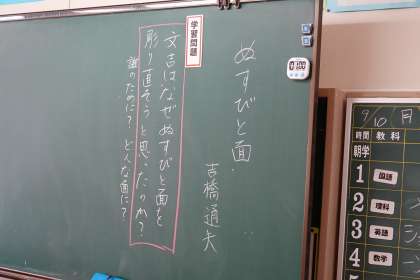 ぬすびと面
吉橋通夫
学習問題
文吉はなぜぬすびと面を
彫り直そうと思ったのか?
誰のために? どんな面に?
9/10 月
時間 教科
朝学
1 国語
2 理科
3 英語
4 数学
5